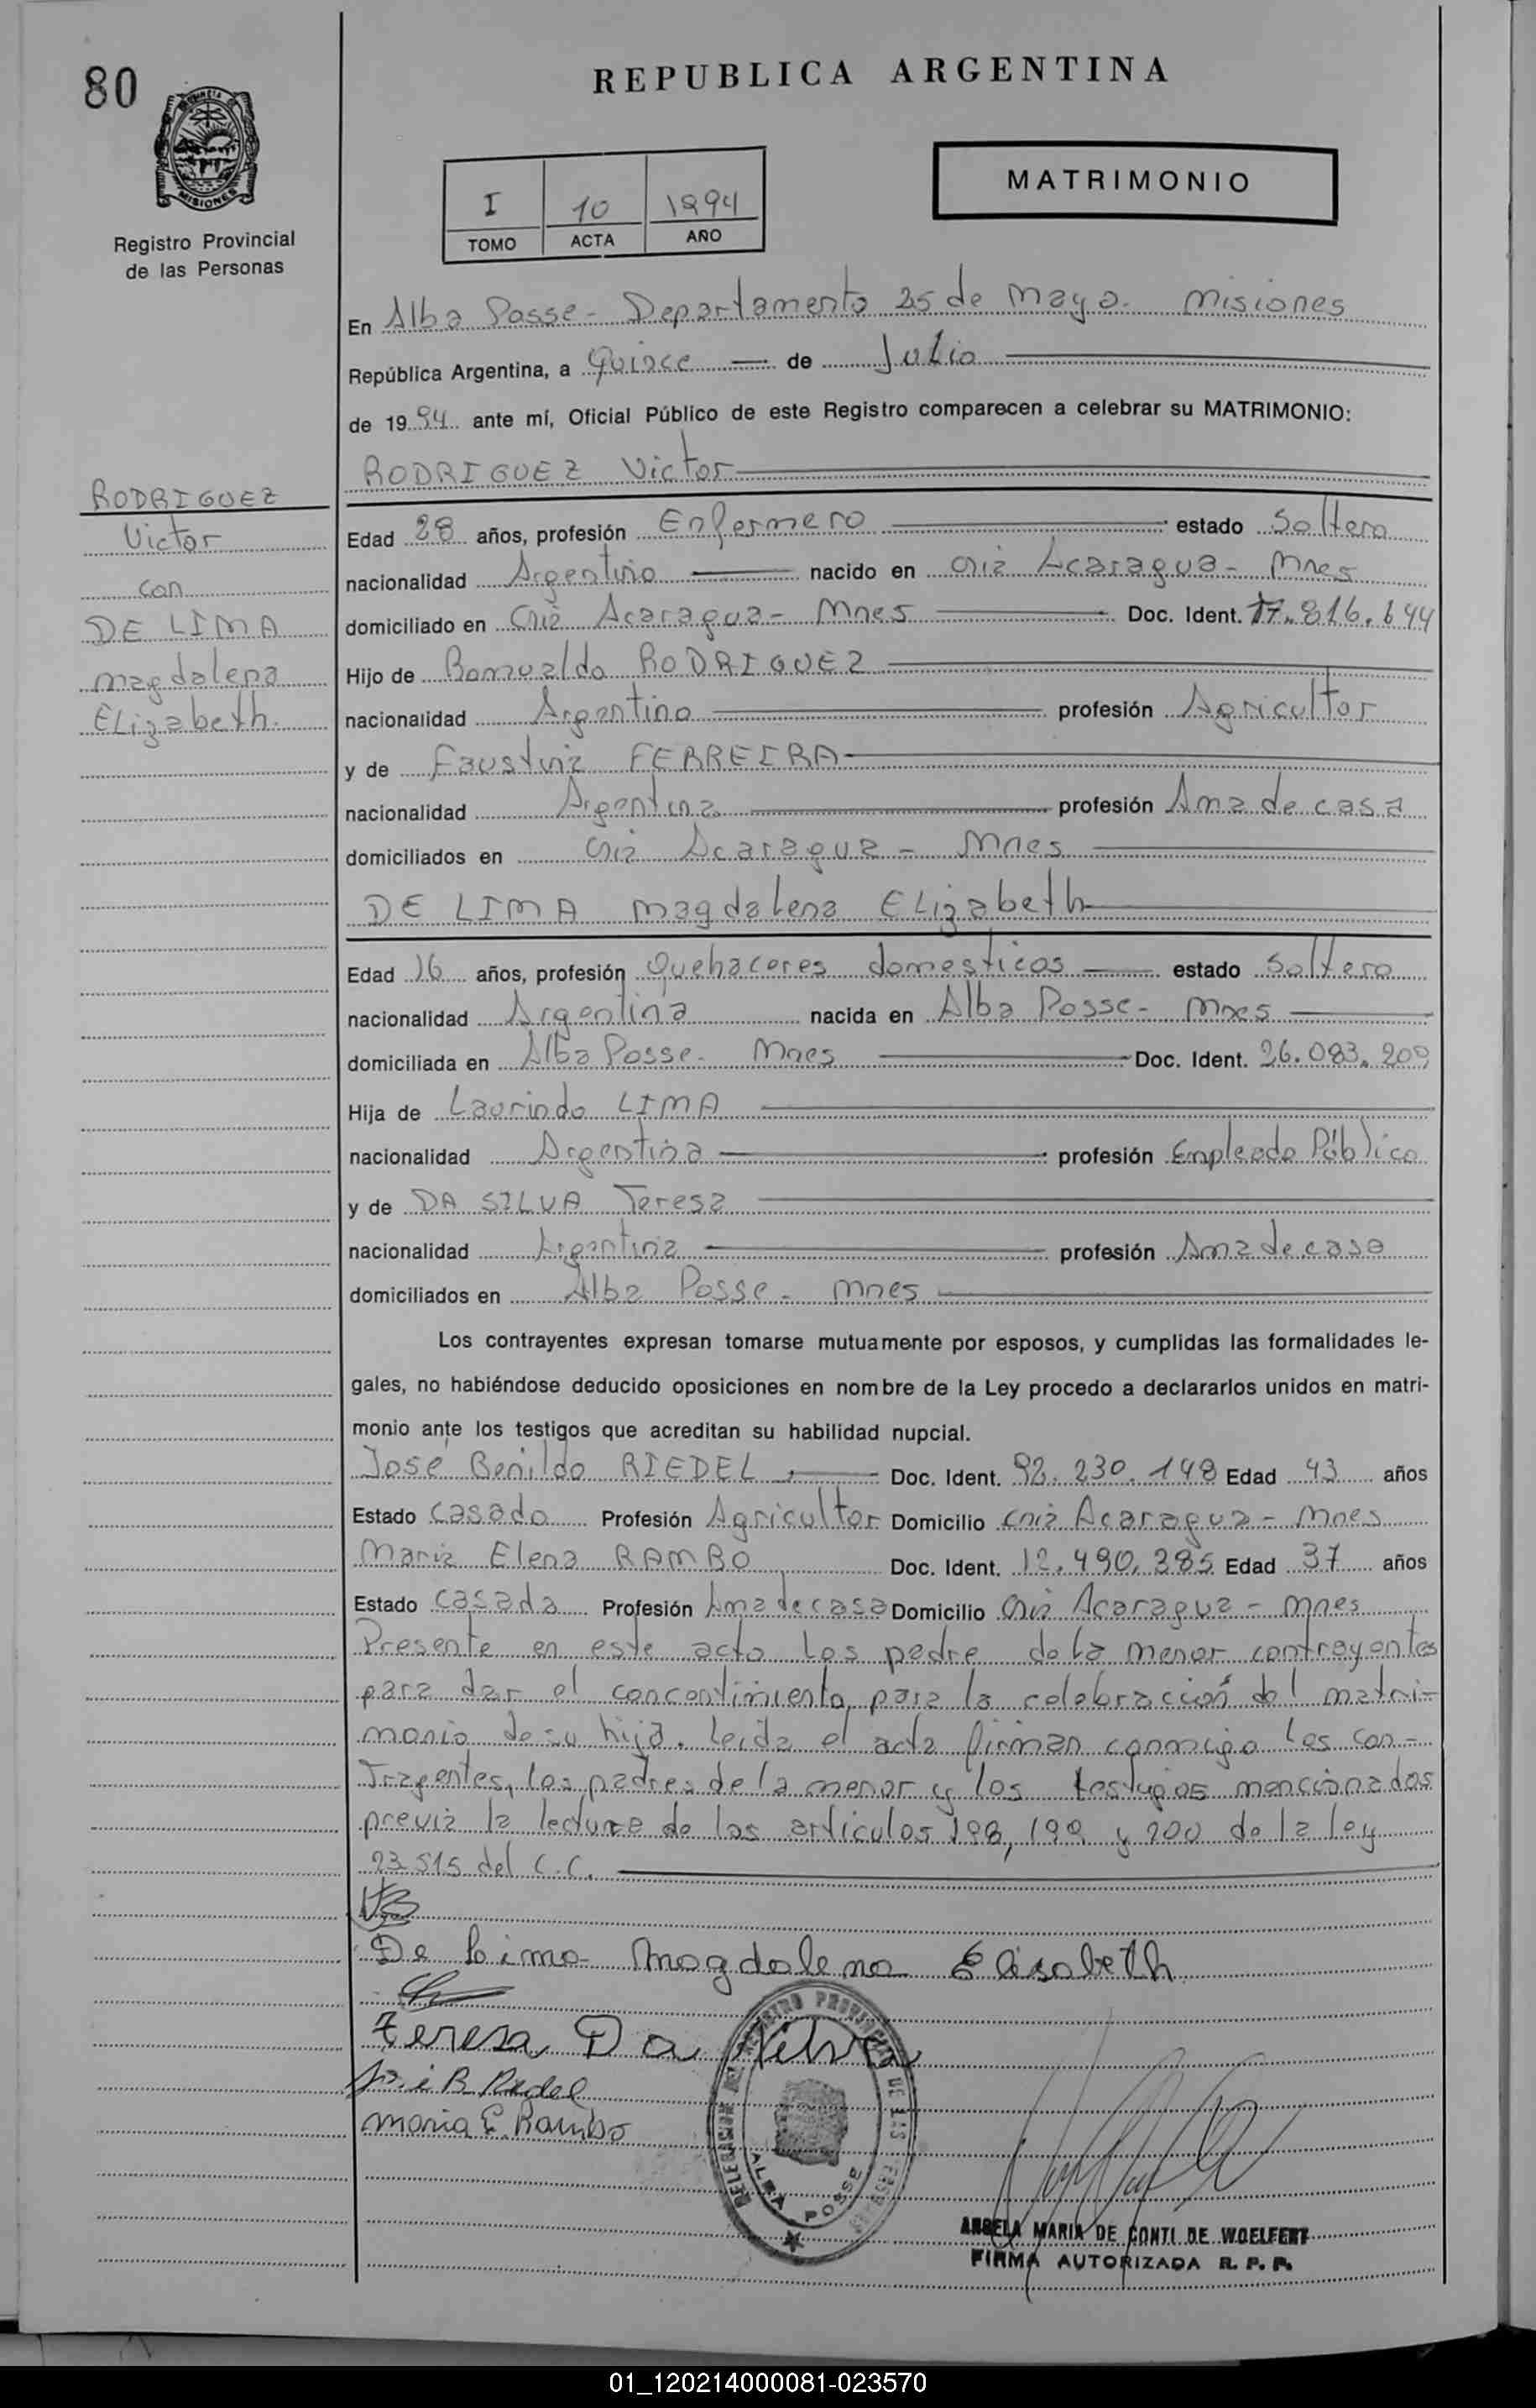 80
REPUBLICA ARGENTINA
MISIONES
Registro Provincial
de las Personas
I 10 1994
TOMO ACTA AÑO
MATRIMONIO
En Alba Posse - Departamento 25 de Mayo - Misiones
República Argentina, a Quince de Julio
de 1994 ante mí, Oficial Público de este Registro comparecen a celebrar su MATRIMONIO:
RODRIGUEZ Victor
RODRIGUEZ
Victor
con
DE LIMA
Magdalena
Elizabeth
Edad 28 años, profesión Enfermero estado Soltero
nacionalidad Argentino nacido en Cnia Acaragua - Mnes
domiciliado en Cnia Acaragua - Mnes Doc. Ident. 17.816.644
Hijo de Romualdo RODRIGUEZ
nacionalidad Argentino profesión Agricultor
y de Faustina FERREIRA
nacionalidad Argentina profesión Ama de casa
domiciliados en Cnia Acaragua - Mnes
DE LIMA Magdalena Elizabeth
Edad 16 años, profesión Quehaceres domesticos estado Soltera
nacionalidad Argentina nacida en Alba Posse - Mnes
domiciliada en Alba Posse - Mnes Doc. Ident. 26.083.209
Hija de Laurindo LIMA
nacionalidad Argentina profesión Empleado Público
y de DA SILVA Teresa
nacionalidad Argentina profesión Ama de casa
domiciliados en Alba Posse - Mnes
Los contrayentes expresan tomarse mutuamente por esposos, y cumplidas las formalidades le-
gales, no habiéndose deducido oposiciones en nombre de la Ley procedo a declararlos unidos en matri-
monio ante los testigos que acreditan su habilidad nupcial.
José Benildo RIEDEL Doc. Ident. 92.230.148 Edad 43 años
Estado Casado Profesión Agricultor Domicilio Cnia Acaragua - Mnes
Maria Elena RAMBO Doc. Ident. 12.490.385 Edad 37 años
Estado Casada Profesión Ama de casa Domicilio Cnia Acaragua - Mnes
Presente en este acto los padre de la menor contrayentes
para dar el concentimiento para la celebración del matri-
monio de su hija. Leida el acta firman conmigo los con-
trayentes, los padres de la menor y los testigos mencionados
previa la lectura de los articulos 198, 199 y 200 de la ley
23.515 del C.C.
De Lima Magdalena Elisabeth
Teresa Da Silva
José B Riedel
Maria E. Rambo
DELEGACION DEL REGISTRO PROVINCIAL DE LAS PERSONAS
ALBA POSSE
ANGELA MARIA DE CONTI DE WOELFERT
FIRMA AUTORIZADA R. P. P.
01_120214000081-023570